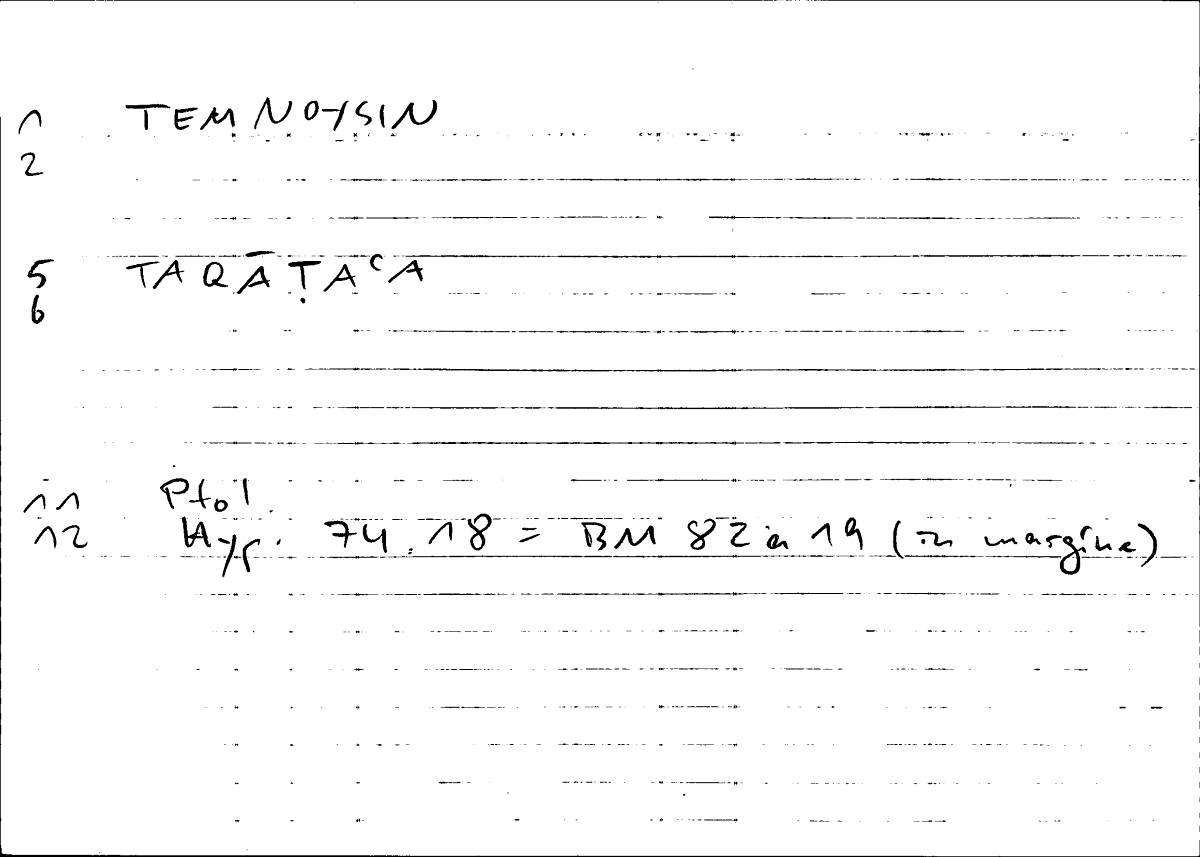 1 TEMNOYSIN
2
5 TAQĀṬAʿA
6
11 Ptol.
12 Hyp. 74.18 = BM 82 a 19 (in margine)